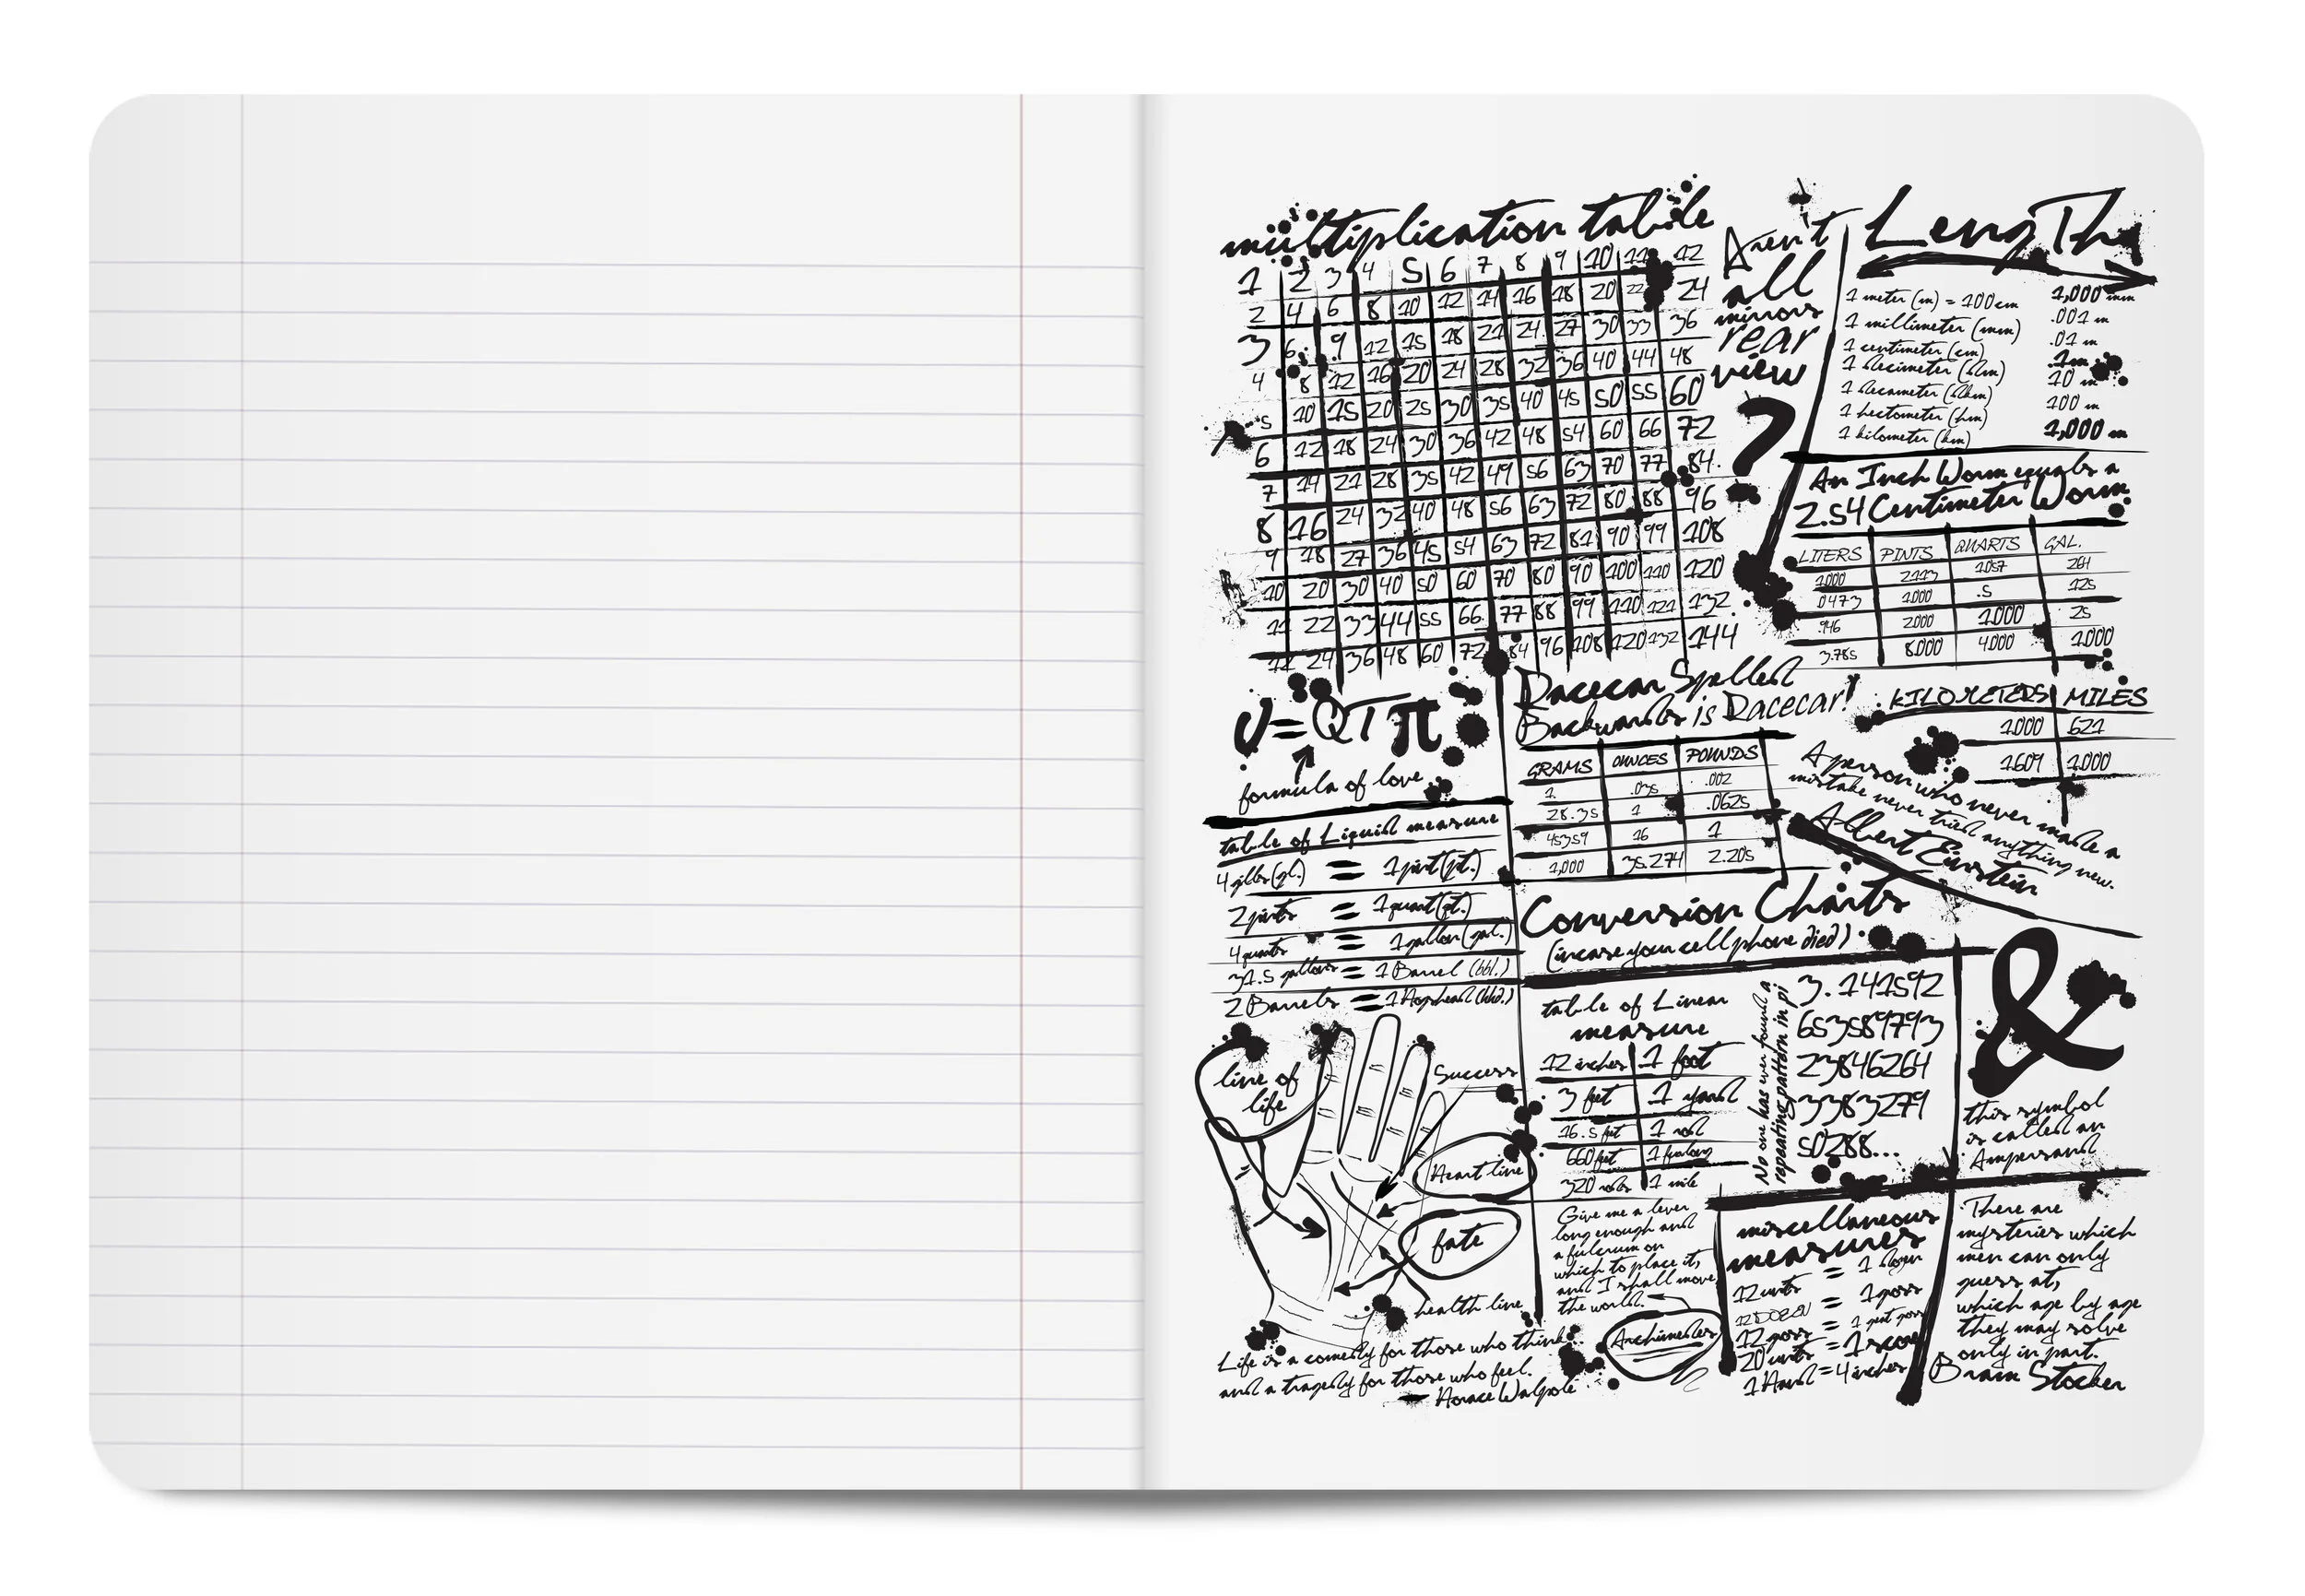 multiplication table
1 2 3 4 5 6 7 8 9 10 11 12
2 4 6 8 10 12 14 16 18 20 22 24
3 6 9 12 15 18 21 24 27 30 33 36
4 8 12 16 20 24 28 32 36 40 44 48
5 10 15 20 25 30 35 40 45 50 55 60
6 12 18 24 30 36 42 48 54 60 66 72
7 14 21 28 35 42 49 56 63 70 77 84
8 16 24 32 40 48 56 63 72 80 88 96
9 18 27 36 45 54 63 72 81 90 99 108
10 20 30 40 50 60 70 80 90 100 110 120
11 22 33 44 55 66 77 88 99 110 121 132
12 24 36 48 60 72 84 96 108 120 132 144
Arent
all
mirrors
rear
view
?
Length
1 meter (m) = 100 cm 1,000 mm
1 millimeter (mm) .001 m
1 centimeter (cm) .01 m
1 decimeter (dm) .1 m
1 decameter (dkm) 10 m
1 hectometer (hm) 100 m
1 kilometer (km) 1,000 m
An Inch Worm equals a
2.54 Centimeter Worm
LITERS PINTS QUARTS GAL.
1.000 2.113 1.057 264
.0473 1.000 .5 125
.946 2.000 1.000 25
3.785 8.000 4.000 1.000
KILOMETERS MILES
1.000 .621
1.609 1.000
U=QTπ
formula of love
Racecar Spelled
Backwards is Racecar!
GRAMS OUNCES POUNDS
1. .035 .002
28.35 1 .0625
45359 16 1
1,000 35.274 2.205
A person who never made a
mistake never tried anything new.
Albert Einstein
table of Liquid measure
4 gills (gl.) = 1 pint (pt.)
2 pints = 1 quart (qt.)
4 quarts = 1 gallon (gal.)
31.5 gallons = 1 Barrel (bbl.)
2 Barrels = 1 Hogshead (hhd.)
Conversion Charts
(incase your cell phone died)
table of Linear
measure
12 inches 1 foot
3 feet 1 yard
16.5 feet 1 rod
660 feet 1 furlong
320 rods 1 mile
No one has ever found a
repeating pattern in pi
3.141592
653589793
23846264
3383279
50288...
&
this symbol
is called an
Ampersand
line of
life
Success
Heart line
fate
health line
Life is a comedy for those who think...
and a tragedy for those who feel.
— Horace Walpole
Give me a lever
long enough and
a fulcrum on
which to place it,
and I shall move
the world.
Archimedes
miscellaneous
measures
12 units = 1 dozen
12 DOZEN = 1 gross
12 gross = 1 great gross
20 units = 1 score
1 Hand = 4 inches
There are
mysteries which
men can only
guess at,
which age by age
they may solve
only in part.
Bram Stocker